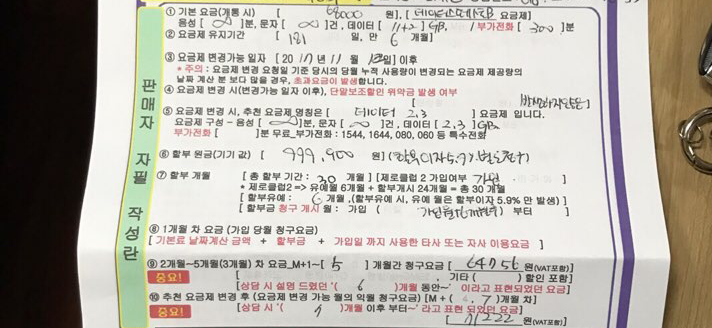 판매자 자필 작성란
① 기본 요금(개통 시) [ 68000 원], [ 데이터스페셜B 요금제]
음성 [ ∞ ]분, 문자 [ ∞ ]건, 데이터 [ 11+2 ]GB, / 부가전화 [ 300 ]분
② 요금제 유지기간 [ 181 일, 만 6 개월]
③ 요금제 변경가능 일자 [20 년 11 월 일] 이후
* 주의 : 요금제 변경 요청일 기준 당시의 당월 누적 사용량이 변경되는 요금제 제공량의
날짜 계산 분 보다 많을 경우, 초과요금이 발생합니다.
④ 요금제 변경 시(변경가능 일자 이후), 단말보조할인 위약금 발생 여부 [ 발생하지않음 ]
⑤ 요금제 변경 시, 추천 요금제 명칭은 [ 데이터 2.3 ] 요금제 입니다.
요금제 구성 - 음성 [ ∞ ]분, 문자 [ ∞ ]건, 데이터 [ 2.3 ]GB
부가전화 [ ]분 무료_부가전화 : 1544, 1644, 080, 060 등 특수전화
⑥ 할부 원금(기기 값) [ 999,900 원]
⑦ 할부 개월 [ 총 할부 기간 : 30 개월 ] [제로클럽 2 가입여부 가입 ]
* 제로클럽2 => 유예월 6개월 + 할부개시 24개월 = 총 30 개월
[ 할부유예 : 6 개월 ,(할부유예 시, 유예 월은 할부이자 5.9% 만 발생) ]
[ 할부금 청구 개시 월 : 가입 ( ) 부터 ]
⑧ 1개월 차 요금 (가입 당월 청구요금)
[ 기본료 날짜계산 금액 + 할부금 + 가입일 까지 사용한 타사 또는 자사 이용요금 ]
⑨ 2개월~5개월(3개월) 차 요금_M+1~[ 5 ]개월간 청구요금 [ 64756 원(VAT포함)]
중요! [ , 기타 ( ) 할인 포함 ]
[상담 시 설명 드렸던 '( 6 )개월 동안~' 이라고 표현되었던 요금]
⑩ 추천 요금제 변경 후 (요금제 변경 가능 월의 익월 청구요금) [M + ( 6, 7 )개월 차]
중요! [상담 시 '( 7 )개월 이후 부터~' 라고 표현 되었던 요금] [ 71222 원(VAT포함)]